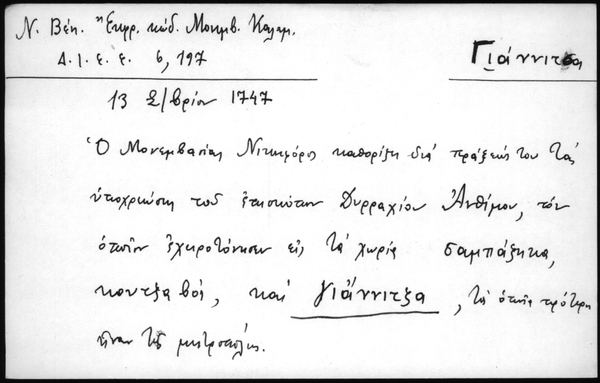 Ν. Βέη. "Έκφρ. κώδ. Μονεμβ. Καλαμ.
Δ.Ι.Ε.Ε. 6, 197
Γιάννιτσα
13 /βρίου 1747
Ὁ Μονεμβασίας Νικηφόρος καθορίζει διὰ πράξεώς του τὰς
ὑποχρεώσεις τοῦ ἐπισκόπου Δυρραχίου Ἀνθίμου, τὸν
ὁποῖον ἐχειροτόνησεν εἰς τὰ χωρία σαμπάζικα,
κουτζαβά, καὶ Γιάννιτζα, τὰ ὁποῖα πρότερον
ἦσαν τῆς μητροπόλεως.